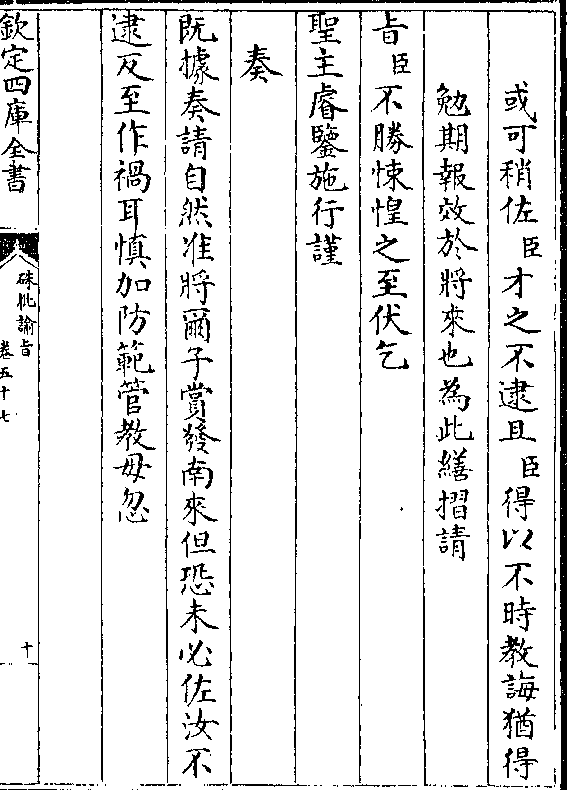 或可稍佐臣才之不逮且臣得以不時教誨猶得
勉期報效於將來也為此繕摺請
旨臣不勝悚惶之至伏乞
聖主睿鑒施行謹
奏
既據奏請自然准將爾子賞發南來但恐未必佐汝不
逮反至作禍耳慎加防範管教毋忽
欽定四庫全書
硃批諭旨
卷五十七
十